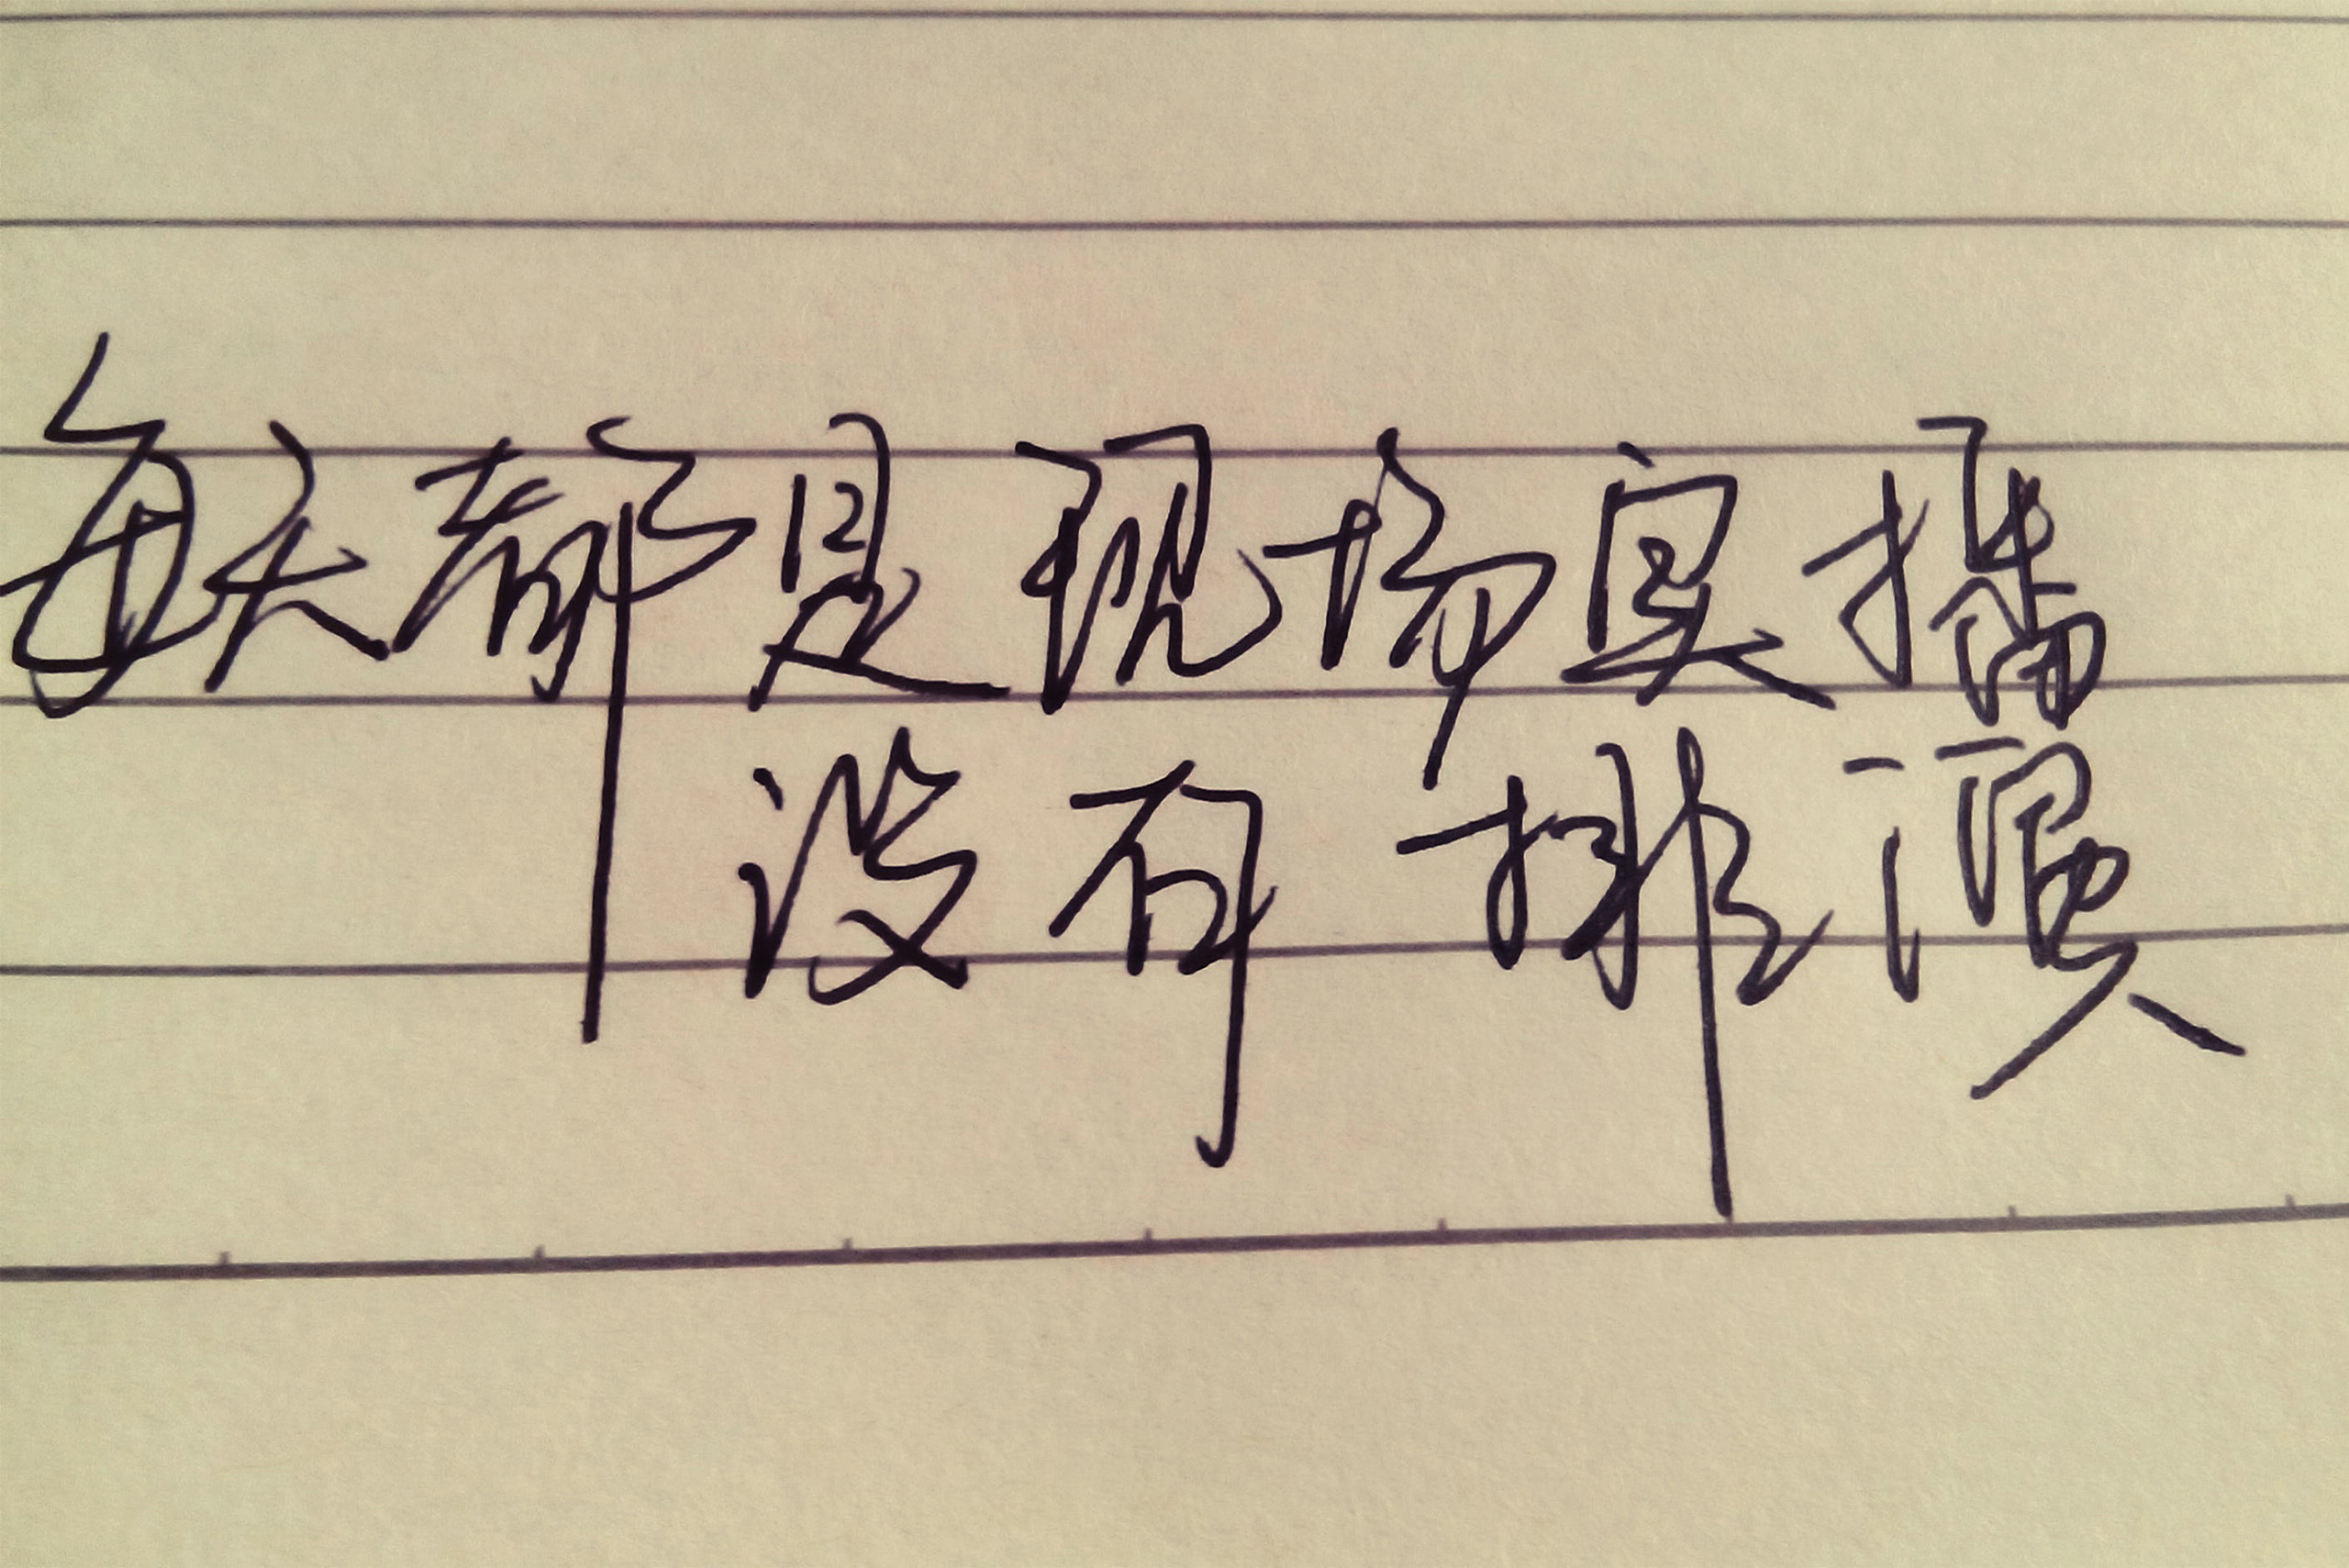 每天都是现场实播
没有排演